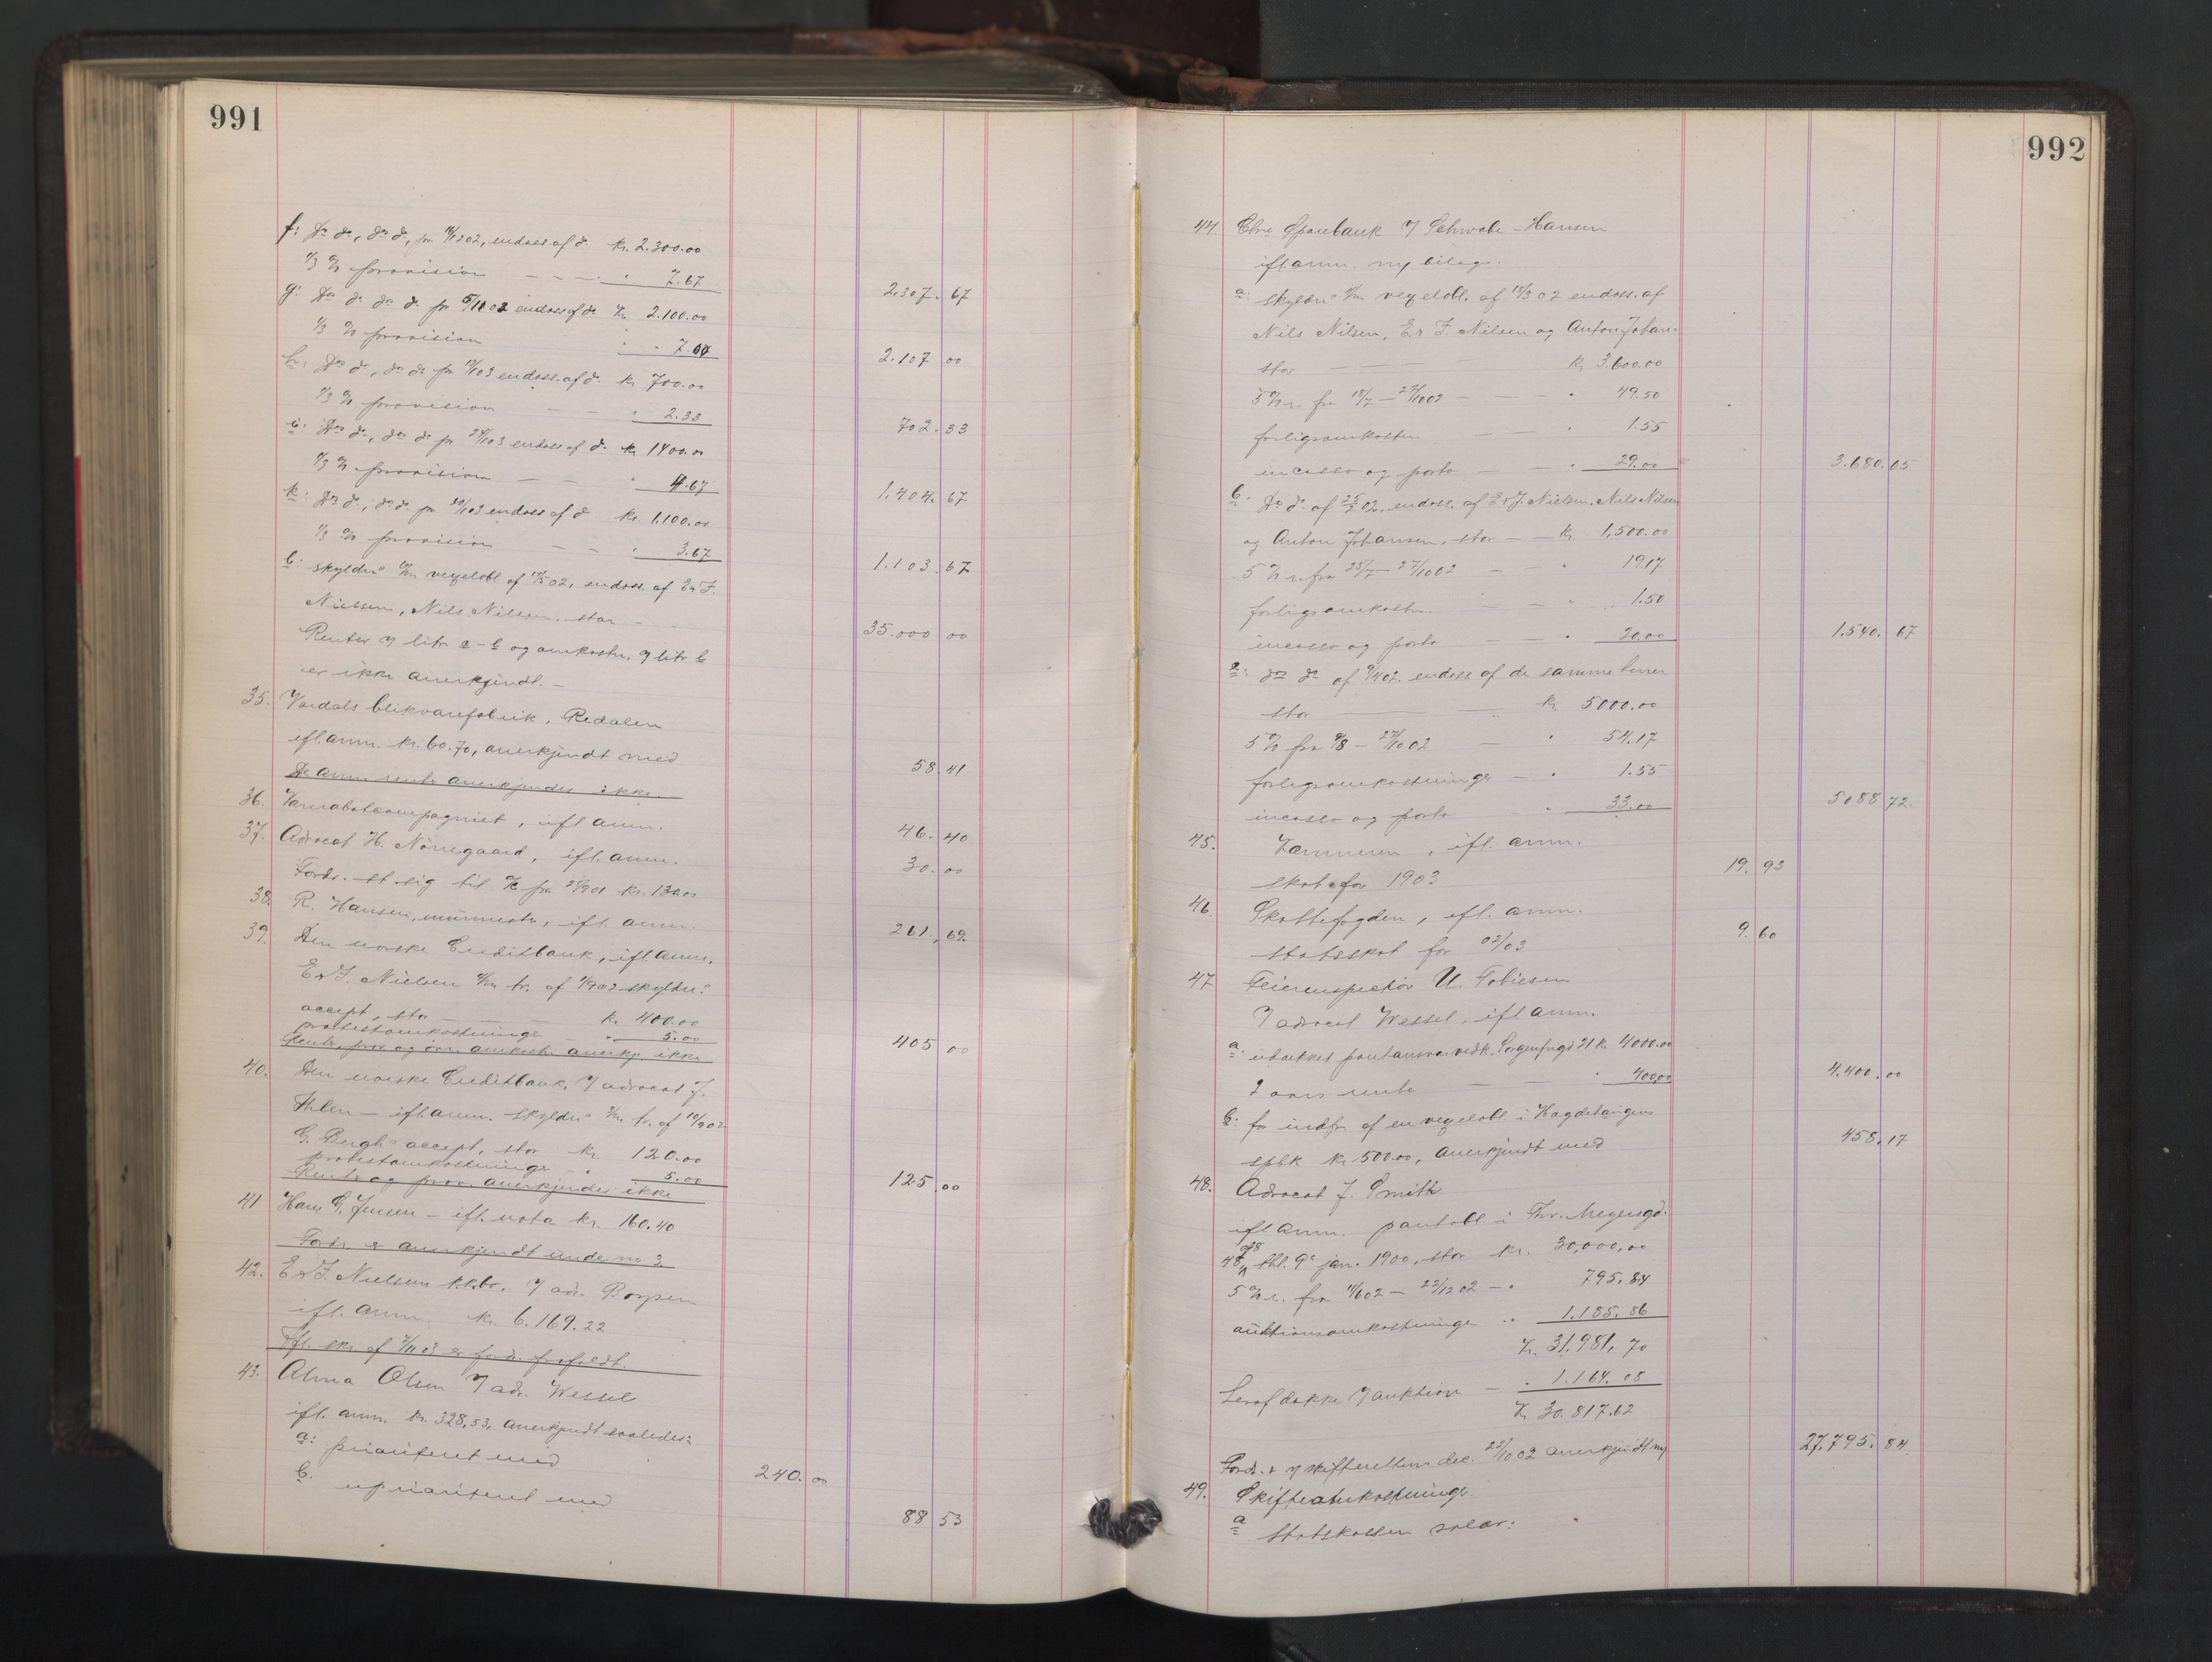 991
f: Do do, do do, pr 18/12 02, endoss af do kr. 2.300.00
1/3 % provision — — — " 7.67 2.307.67
g: Do do do do pr 5/11 02 endoss af do kr 2.100.00
1/3 % provision " - 7.00 2.107 00
h: Do do, do do pr 12/1 03 endoss. af do. kr 700.00
1/3 % provision — — " 2.33 702.33
i: Do do, do do pr 24/1 03 endoss af do kr 1400.00
1/3 % provision — — " 4.67 1.404.67
k: Do do, do do pr 30/1 03 endoss af do kr. 1.100.00
1/3 % provision — — " 3.67 1.103.67
l: skyldn's vexelobl af 02, endoss. af E & F.
Nielsen, Nils Nilsen, stor — — 35.000 00
Renter og omkostn.
er ikke anerkjendt. —
35. Vardals blikvarefabrik, Redalen
ifl. anm. kr. 60.70, anerkjendt med 58.41
De anm rente anerkjendes ikke
36. , ifl anm. 46.40
37. Advocat H. Nörregaard, ifl. anm. 30.00
Fordr.
38. R. Hansen, murmester, ifl. anm. 261.69
39. Den norske Creditbank, ifl. anm.
E & F. Nielsen tr. af 02 skyldn's
accept, stor — — — kr. 400.00
protestomkostninger " 5.00 405 00
Rente, prov og omkostn anerkj. ikke
40. Den norske Creditbank, v/ advocat J.
Ihlen — ifl. anm. skyldn's tr. af 02
G. Berghs accept, stor kr. 120.00
protestomkostninger - " 5.00 125.00
Rente og prov. anerkjendes ikke
41 Hans G. Jensen — ifl. nota kr. 160.40
Fordr. er anerkjendt under no 3.
42. E & F. Nielsens k.k.bo. v/ adv.
ifl. anm. kr. 6.169.22
Ifl. skr. af 03 er fordr. frafaldt.
43. Alma Olsen v/ adv. Wessel
ifl. anm. kr. 328,53, anerkjendt saaledes:
a: prioriteret med 240.00
b. uprioriteret med 88 53
992
44 Chra Sparebank v/ Schwabe-Hansen
ifl. anm. m/ bilage:
a: skyldn's vexelobl. af 18/3 02 endoss. af
Nils Nilsen, E & F. Nilsen og Anton Johan-
stor — — kr 3.600.00
5 % r. fra 18/7 — 27/10 02 — — — " 49.50
forligsomkostn — — " 1.55
incasso og porto — — " 29.00 3.680.05
b: Do do af 02, endoss. af E & F. Nielsen, Nils Nilsen
og Anton Johansen, stor — — kr. 1,500.00
5 % r. fra 25/7 — 27/10 02 — — " 19.17
forligsomkostn. — — " 1.50
incasso og porto — — " 20.00 1.540.67
c: do do af 02. endoss af de samme
stor — — kr. 5000.00
5 % fra 9/8 — 27/10 02 — " 54.17
forligsomkostninger — " 1.55
incasso og porto " 33.00 5088 72.
45. Kæmneren, ifl. anm.
skat for 1903 19.93
46. Skattefogden, ifl. anm.
statsskat for 02/03 9.60
47 Feierinspectör U. Tobiesen
v/ advocat Wessel, ifl anm.
a: udækket pantansvar vedk. Sorgenfrigd 21 kr. 4000.00
2 aars rente — — " 400.00 4.400.00
b: for indfr. af en vexelobl. i Hagdetangens
spbk kr 500.00, anerkjendt med 458.17
48. Advocat J. Smith
ifl anm. pantobl i Thv. Meyersgd.
tbl. 9de jan. 1900, stor kr. 30,000,00
5 % r. fra 02 — 22/12 02 — " 795.84
auktionsomkostninger " 1.185.86
kr. 31.981,70
Heraf dække v/ auktion — " 1.164.08
kr 30.817.62
Fordr. er v/ skifterettens dec. 02 anerkjendt m/ 27.795.84
49. Skifteomkostninger
a statskassen salær: